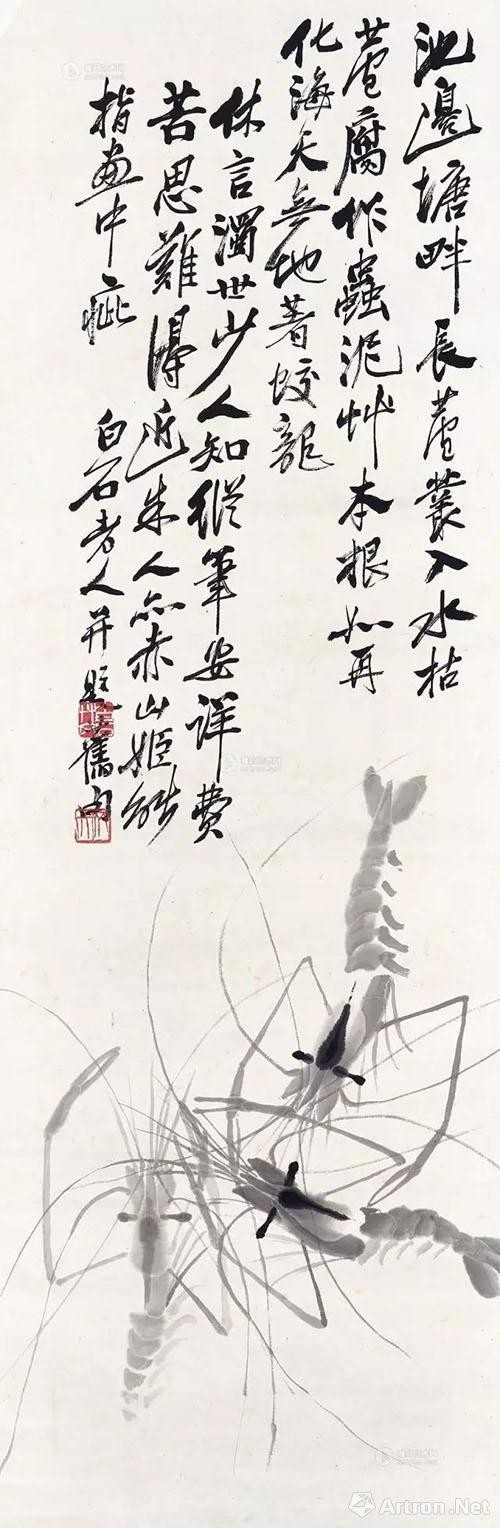 池邊塘畔長蘆叢入水枯
蘆腐作蟲泥艸本根如再
化海天無地著蛟龍
休言濁世少人知縱筆安詳費
苦思難得近朱人亦赤山姬能
指畫中疵
白石老人并題舊句
Artron.Net